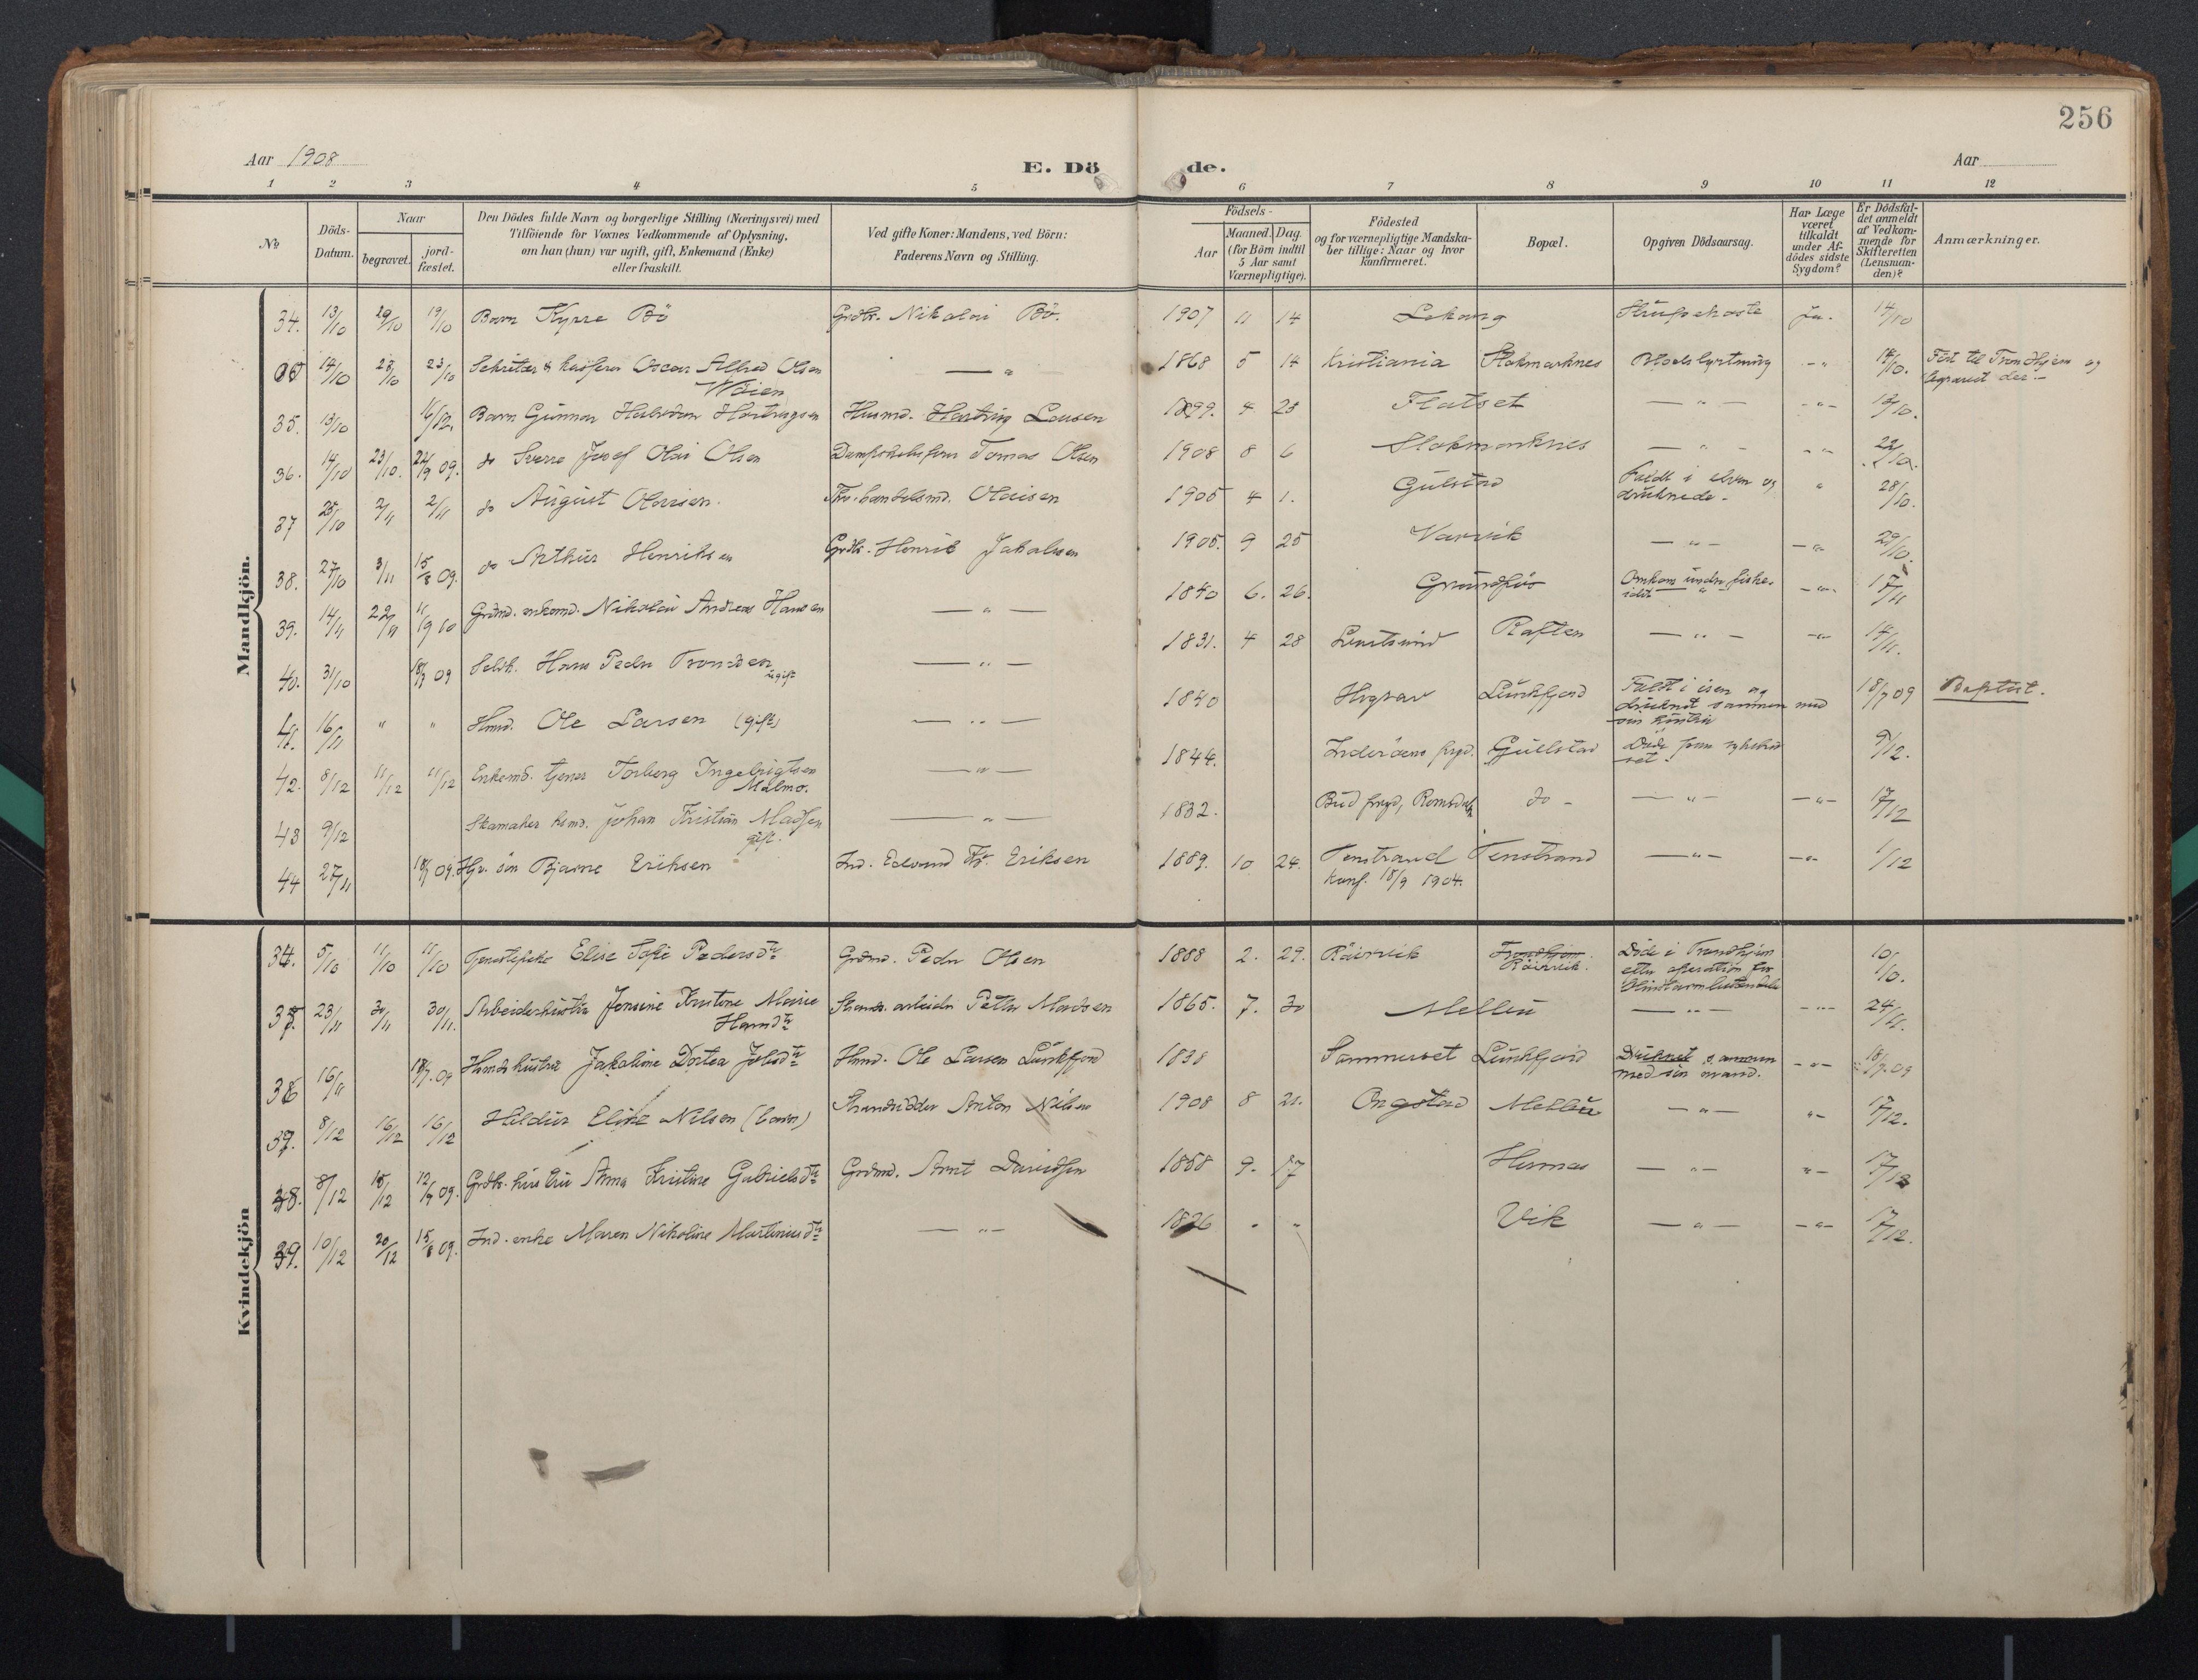 256
Aar 1908
E. Dö de.
Aar
1 2 3 4 5 6 7 8 9 10 11 12
No
Döds-Datum.
Naar
begravet.
jord-fæstet.
Den Dödes fulde Navn og borgerlige Stilling (Næringsvei) med
Tilföiende for Voxnes Vedkommende af Oplysning,
om han (hun) var ugift, gift, Enkemand (Enke)
eller fraskilt.
Ved gifte Koner: Mandens, ved Börn:
Faderens Navn og Stilling.
Födsels-
Aar
Maaned. Dag.
(for Börn indtil
5 Aar samt
Værnepligtige).
Födested
og for værnepligtige Mandska-
ber tillige: Naar og hvor
konfirmeret.
Bopæl.
Opgiven Dödsaarsag.
Har Læge
været
tilkaldt
under Af-
dödes sidste
Sygdom?
Er Dödsfal-
det anmeldt
af Vedkom-
mende for
Skifteretten
(Lensman-
den)?
Anmærkninger.
Mandkjön.
34. 13/10 19/10 Barn Kyrre Bö Grdbr. Nikolai Bö. 1907 11 14 Lekang Strupehoste Ja. 14/10
14/10 23/10 23/10 Oscar Alfred Olsen — " 1868 5 14 Kristiania Stokmarknes Blodstyrtning - " 14/10. Ført til Trondhjem og
begravet der. -
35. 13/10 16/12. Barn Gunnar Halvdan Hartvigsen Husmd. Hartvig Larsen 1899. 4 25 Flatset — " — - " - 13/10.
36. 14/10 23/10. 09. do Sverre Josef Olai Olsen Tomas Olsen 1908 8 6 Stokmarknes — " - - " 22/10.
37 25/10 2/11 2/11 do August Olaisen. Olaisen 1905 4 1. Gulstad Faldt i elven og
druknede. - " 28/10.
38. 27/10 3/11 15/8 09. do Arthur Henriksen Grdbr. Henrik Jakobsen 1905. 9 25 Varvik — " — - " 29/10.
39. 14/11 22/11 Grdmd. enkemd. Nikolai Andreas Hansen — " — 1840 6. 26. Grundfør Omkom under fiske. - " - 17/11
40. 31/10 18/7 09 Hans Peder Tronsen
ugift — " — 1831. 4 28 Raften — " — - " - 14/11.
41. 16/11 " " Hmd. Ole Larsen (gift) — " — 1840 Lunkfjord Faldt i isen og
druknet sammen med
sin hustru 18/7 09 Baptist.
42. 8/12 11/12 11/12 Enkemd. Torberg Ingebrigtsen
Malmo. — " — 1844. Inderöens prgd. Gullstad 9/12.
43 9/12 Skomaker Johan Kristian Madsen
gift. — " — 1832. Bud prgd, Romsdal do - — " — - " - 17/12
44 27/11 18/7 09. sön Bjarne Eriksen Ind. Edvard Fr. Eriksen 1889. 10 24. Tenstrand
konf. 18/9 1904. Tenstrand — " — - " - 1/12
Kvindekjön
34. 5/10 11/10 11/10 Elise Sofie Pedersdtr Grdmd. Peder Olsen 1888 2. 29. Röinvik Trondhjem
Röinvik. Döde i Trondhjem
efter operation for
10/10.
35. 23/11 30/11 30/11. Arbeiderhustru Jensine Kristine Marie
Hansdtr arbeider Peter Madsen 1865. 7. 30 Melbu — " — - " - 24/11.
36 16/11 18/7. 09 Hmds hustru Jakobine Dortea Jobsdtr Hmd. Ole Larsen Lunkfjord 1838 Sommerset Lunkfjord Druknet sammen
med sin mand. - " - 18/7. 09
37. 8/12 16/12 16/12 Hildur Eline Nilsen (barn) Strandsidder Anton Nilsen 1908 8 21. Ongstad Melbu — " — " - 17/12.
38. 8/12 15/12 12/9 09. Grdbr. hustru Anna Kristine Gabrielsdtr Grdmd. Arnt Davidsen 1858 9. 17 — " — " - 17/12
39. 10/12 20/12 15/8 09. Ind. enke Maren Nikoline Martinusdtr — " — 1826 " " Vik — " — - " - 17/12.